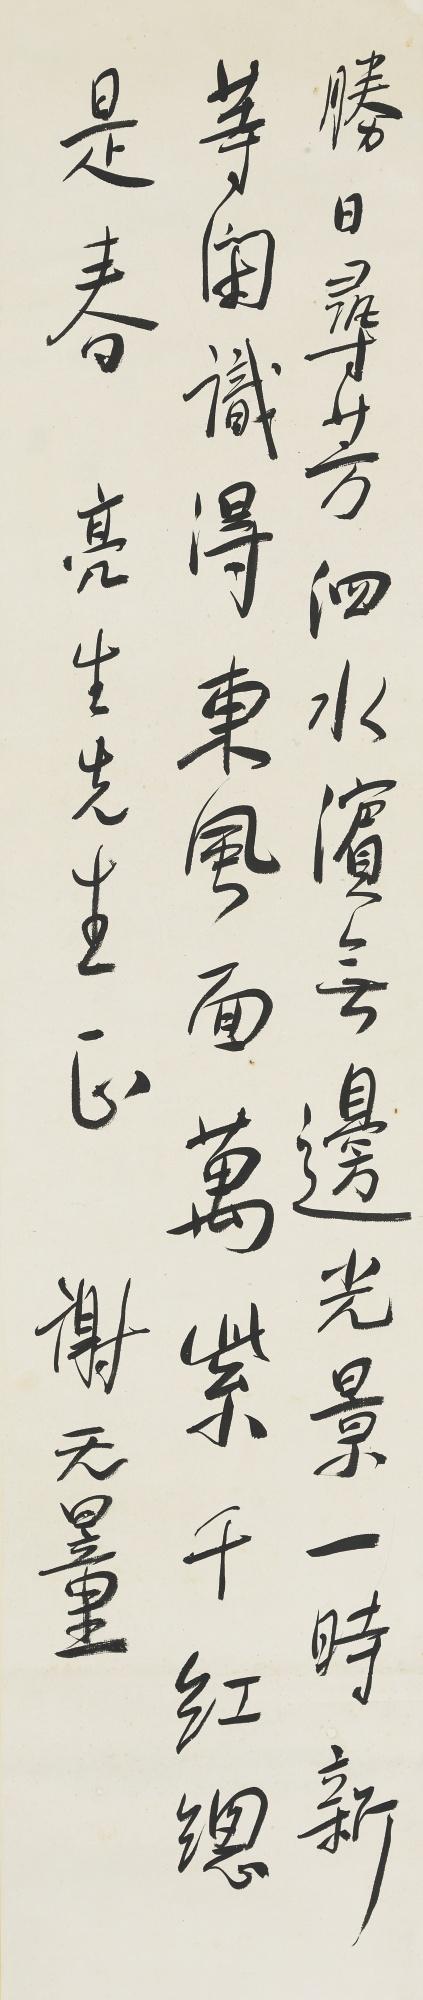 勝日尋芳泗水濱無邊光景一時新
等閑識得東風面萬紫千紅總
是春 亮生先生正 謝无量